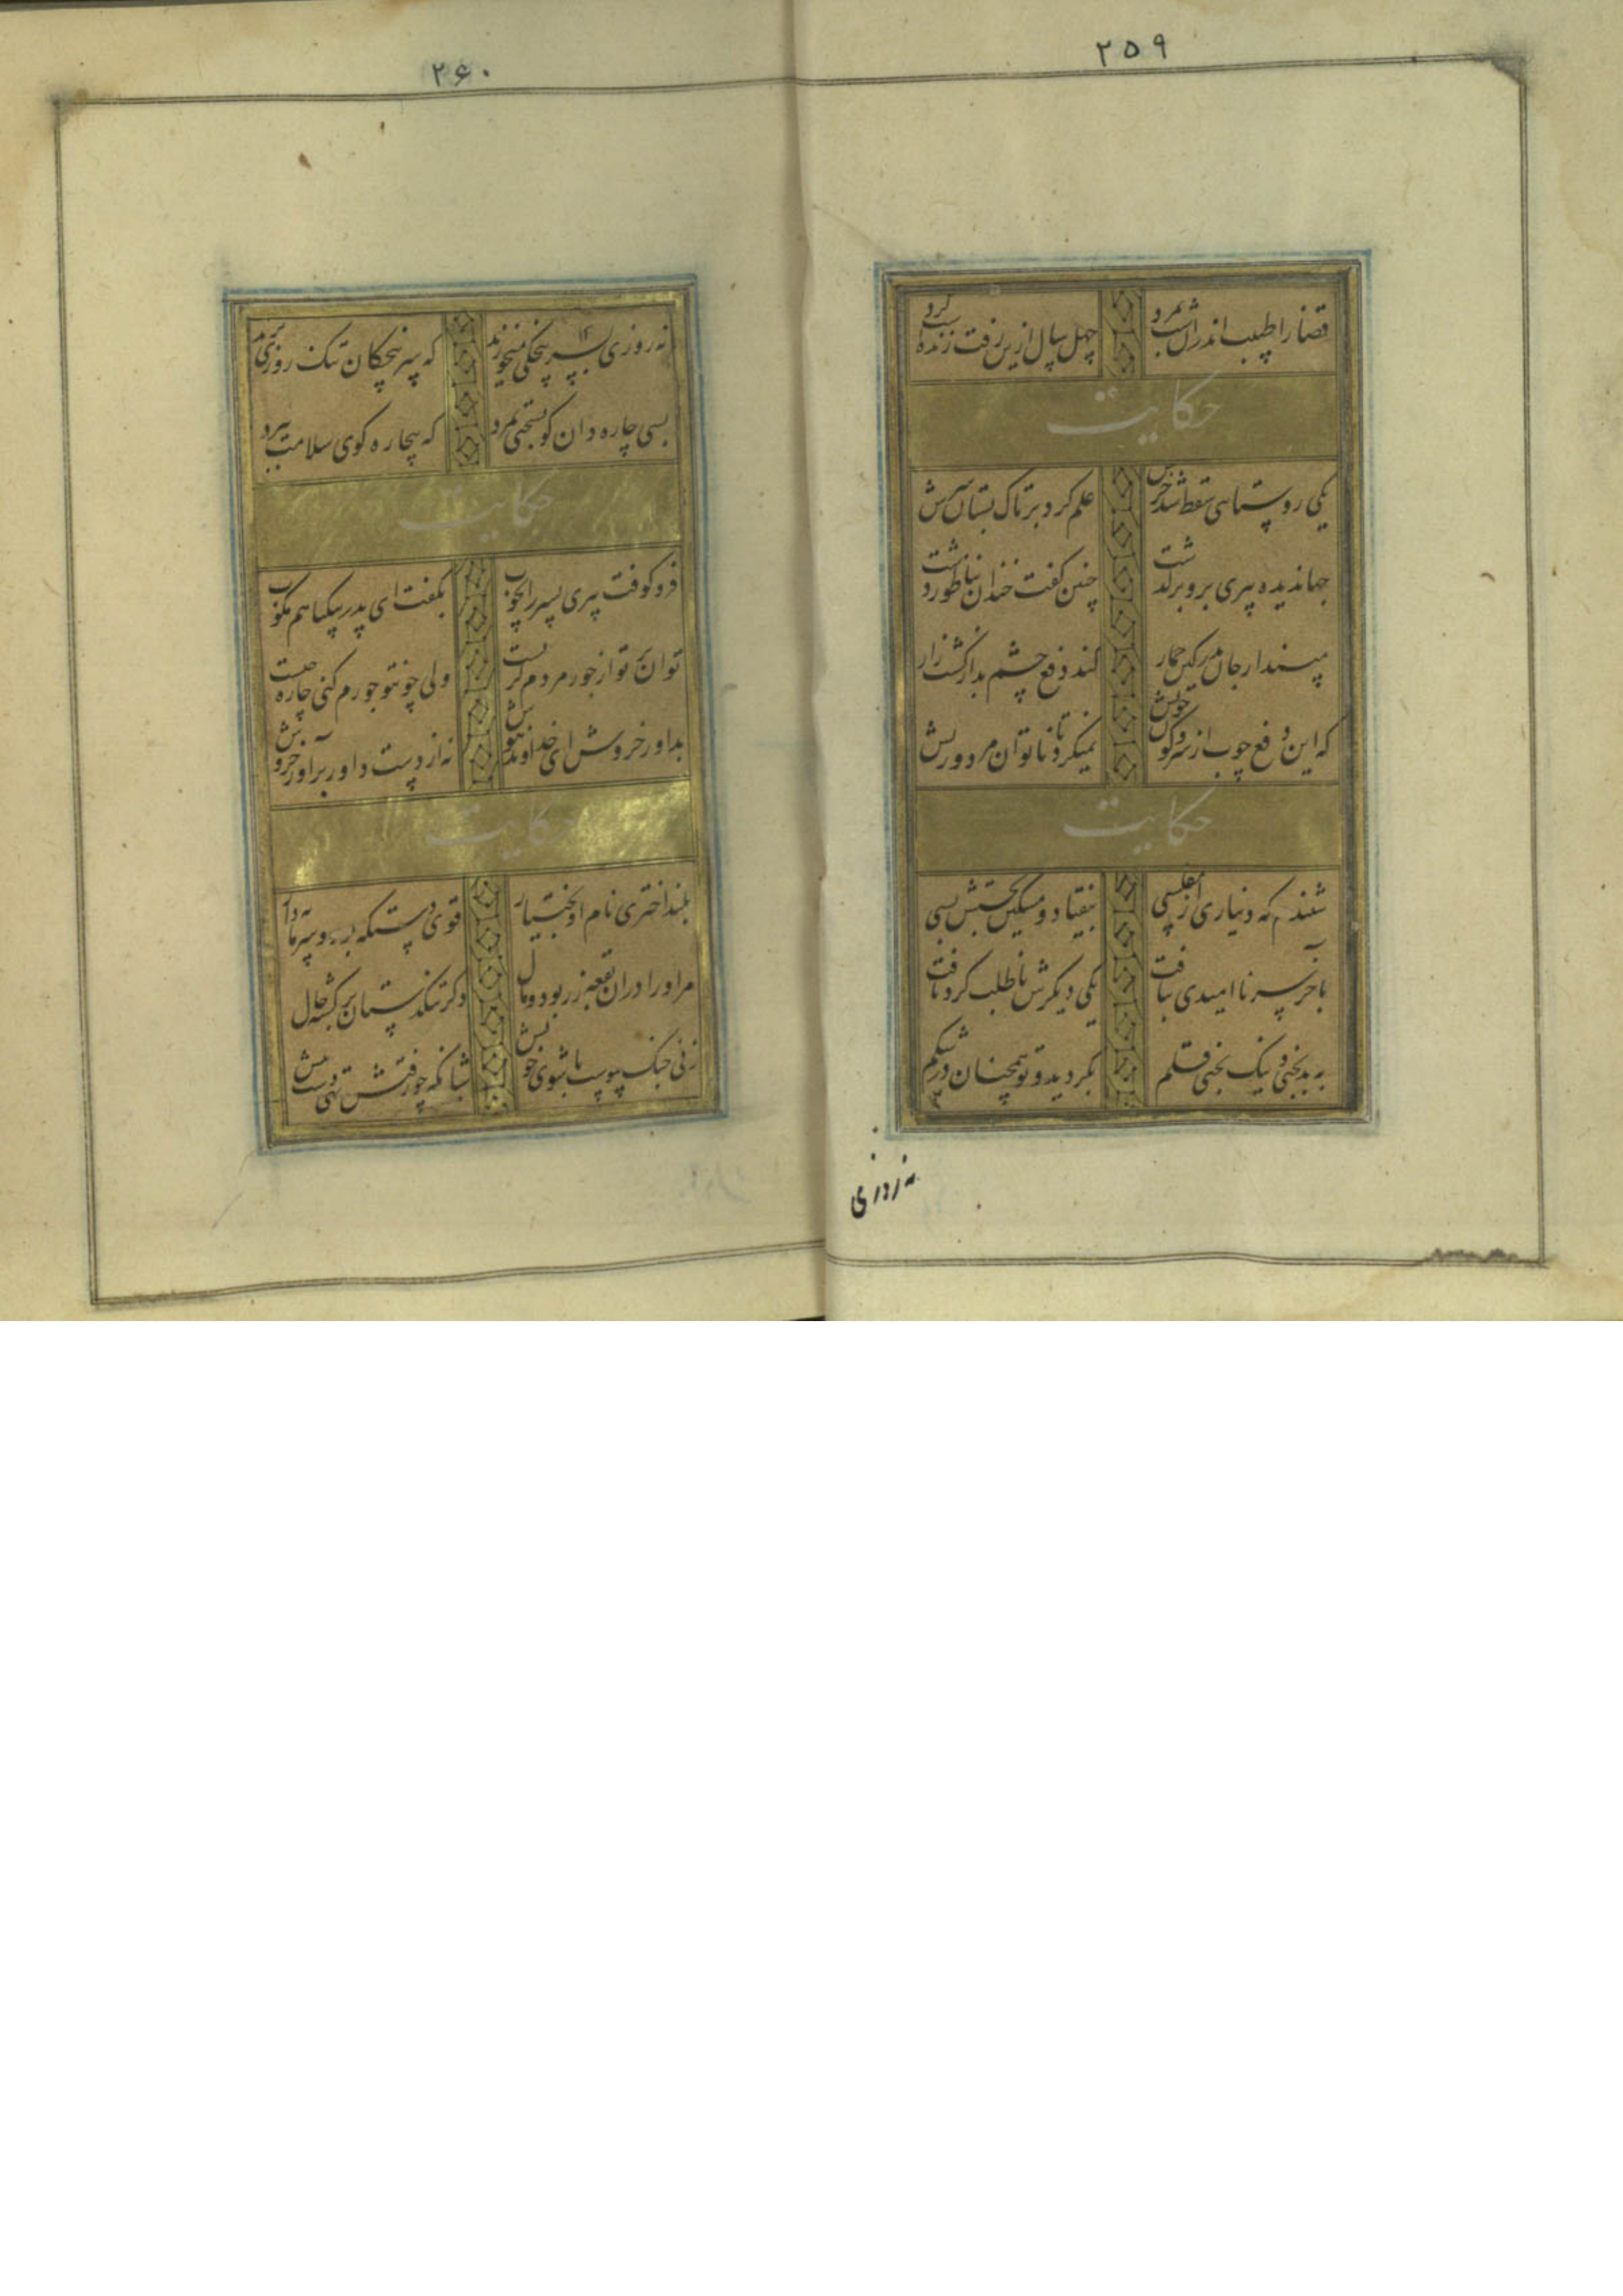 ۲۵۹
قضا را طبیب اندران شب بمرد چهل سال ازین رفت زنده است کرد
حکایت
یکی روستایی سقط شد خرش علم کرد بر تاک بستان سرش
جهاندیده پیری برو برگذشت چنین گفت خندان بناطور دشت
مپندار جان پدر کین حمار کند دفع چشم بد از کشتزار
که این دفع چوب از سر و کون خویش نمیکرد تا ناتوان مرد و ریش
حکایت
شنیدم که دیناری از مفلسی بیفتاد و مسکین بجستش بسی
بآخر سر ناامیدی بتافت یکی دیگرش ناطلب کرد یافت
به بدبختی و نیک بختی قلم بگردید و تو همچنان در شکم
نه روزی
۲۶۰
نه روزی بسرپنجگی میخورند که سرپنجگان تنگ روزی ترند
بسی چاره دان کو بسختی بمرد که بیچاره گوی سلامت ببرد
حکایت
فرو کوفت پیری پسر را بچوب بگفت ای پدر بیگناهم مکوب
توان بر تو از جور مردم گریست ولی چو تو جورم کنی چاره چیست
بداور خروش ای خداوند هوش نه از دست داور برآور خروش
حکایت
بلند اختری نام او بختیار قوی دستگه بد و سرمایه دار
مر او را دران بقعه زر بود و مال دگر تنگدستان برگشته حال
زنی جنگ پیوست با شوی خویش شبانگه چو رفتش تهی دست پیش